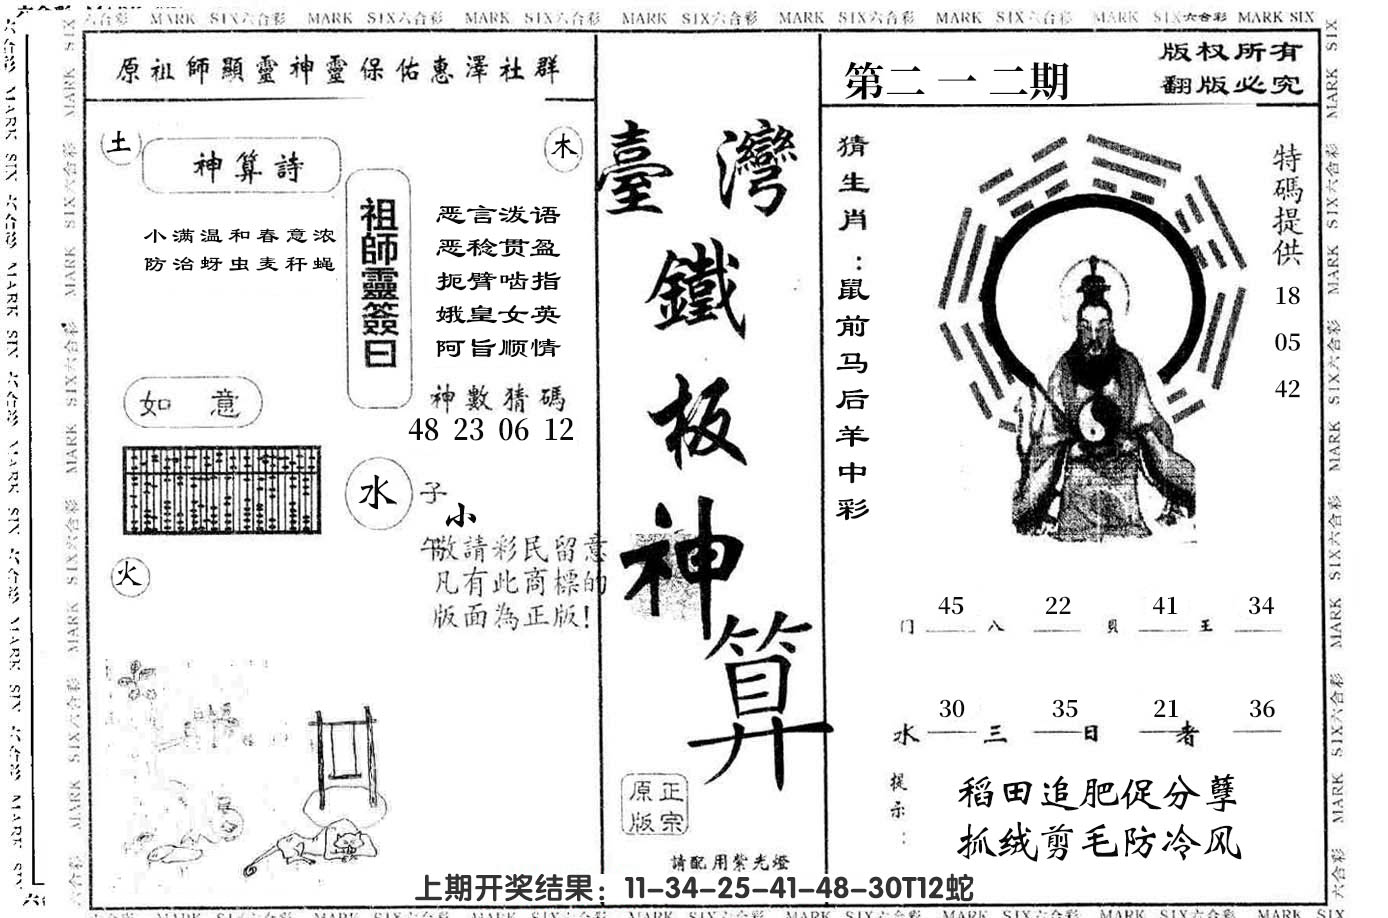 MARK SIX六合彩 MARK SIX六合彩 MARK SIX六合彩 MARK SIX六合彩 MARK SIX六合彩 MARK SIX六合彩 MARK SIX六合彩 MARK SIX
原祖師顯靈神靈保佑惠澤社群
土
神算詩
木
小满温和春意浓
防治蚜虫麦秆蝇
祖師靈簽曰
恶言泼语
恶稔贯盈
扼臂啮指
娥皇女英
阿旨顺情
如意
神數猜碼
48 23 06 12
水
子
小
午
敬請彩民留意
凡有此商標的
版面為正版!
火
臺灣
鐵
板
神
算
原正
版宗
請配用紫光燈
第二一二期
版权所有
翻版必究
猜生肖:鼠前马后羊中彩
特碼提供
18
05
42
45 22 41 34
门 八 貝 王
30 35 21 36
水 三 日 者
提示:
稻田追肥促分孽
抓绒剪毛防冷风
上期开奖结果：11-34-25-41-48-30T12蛇